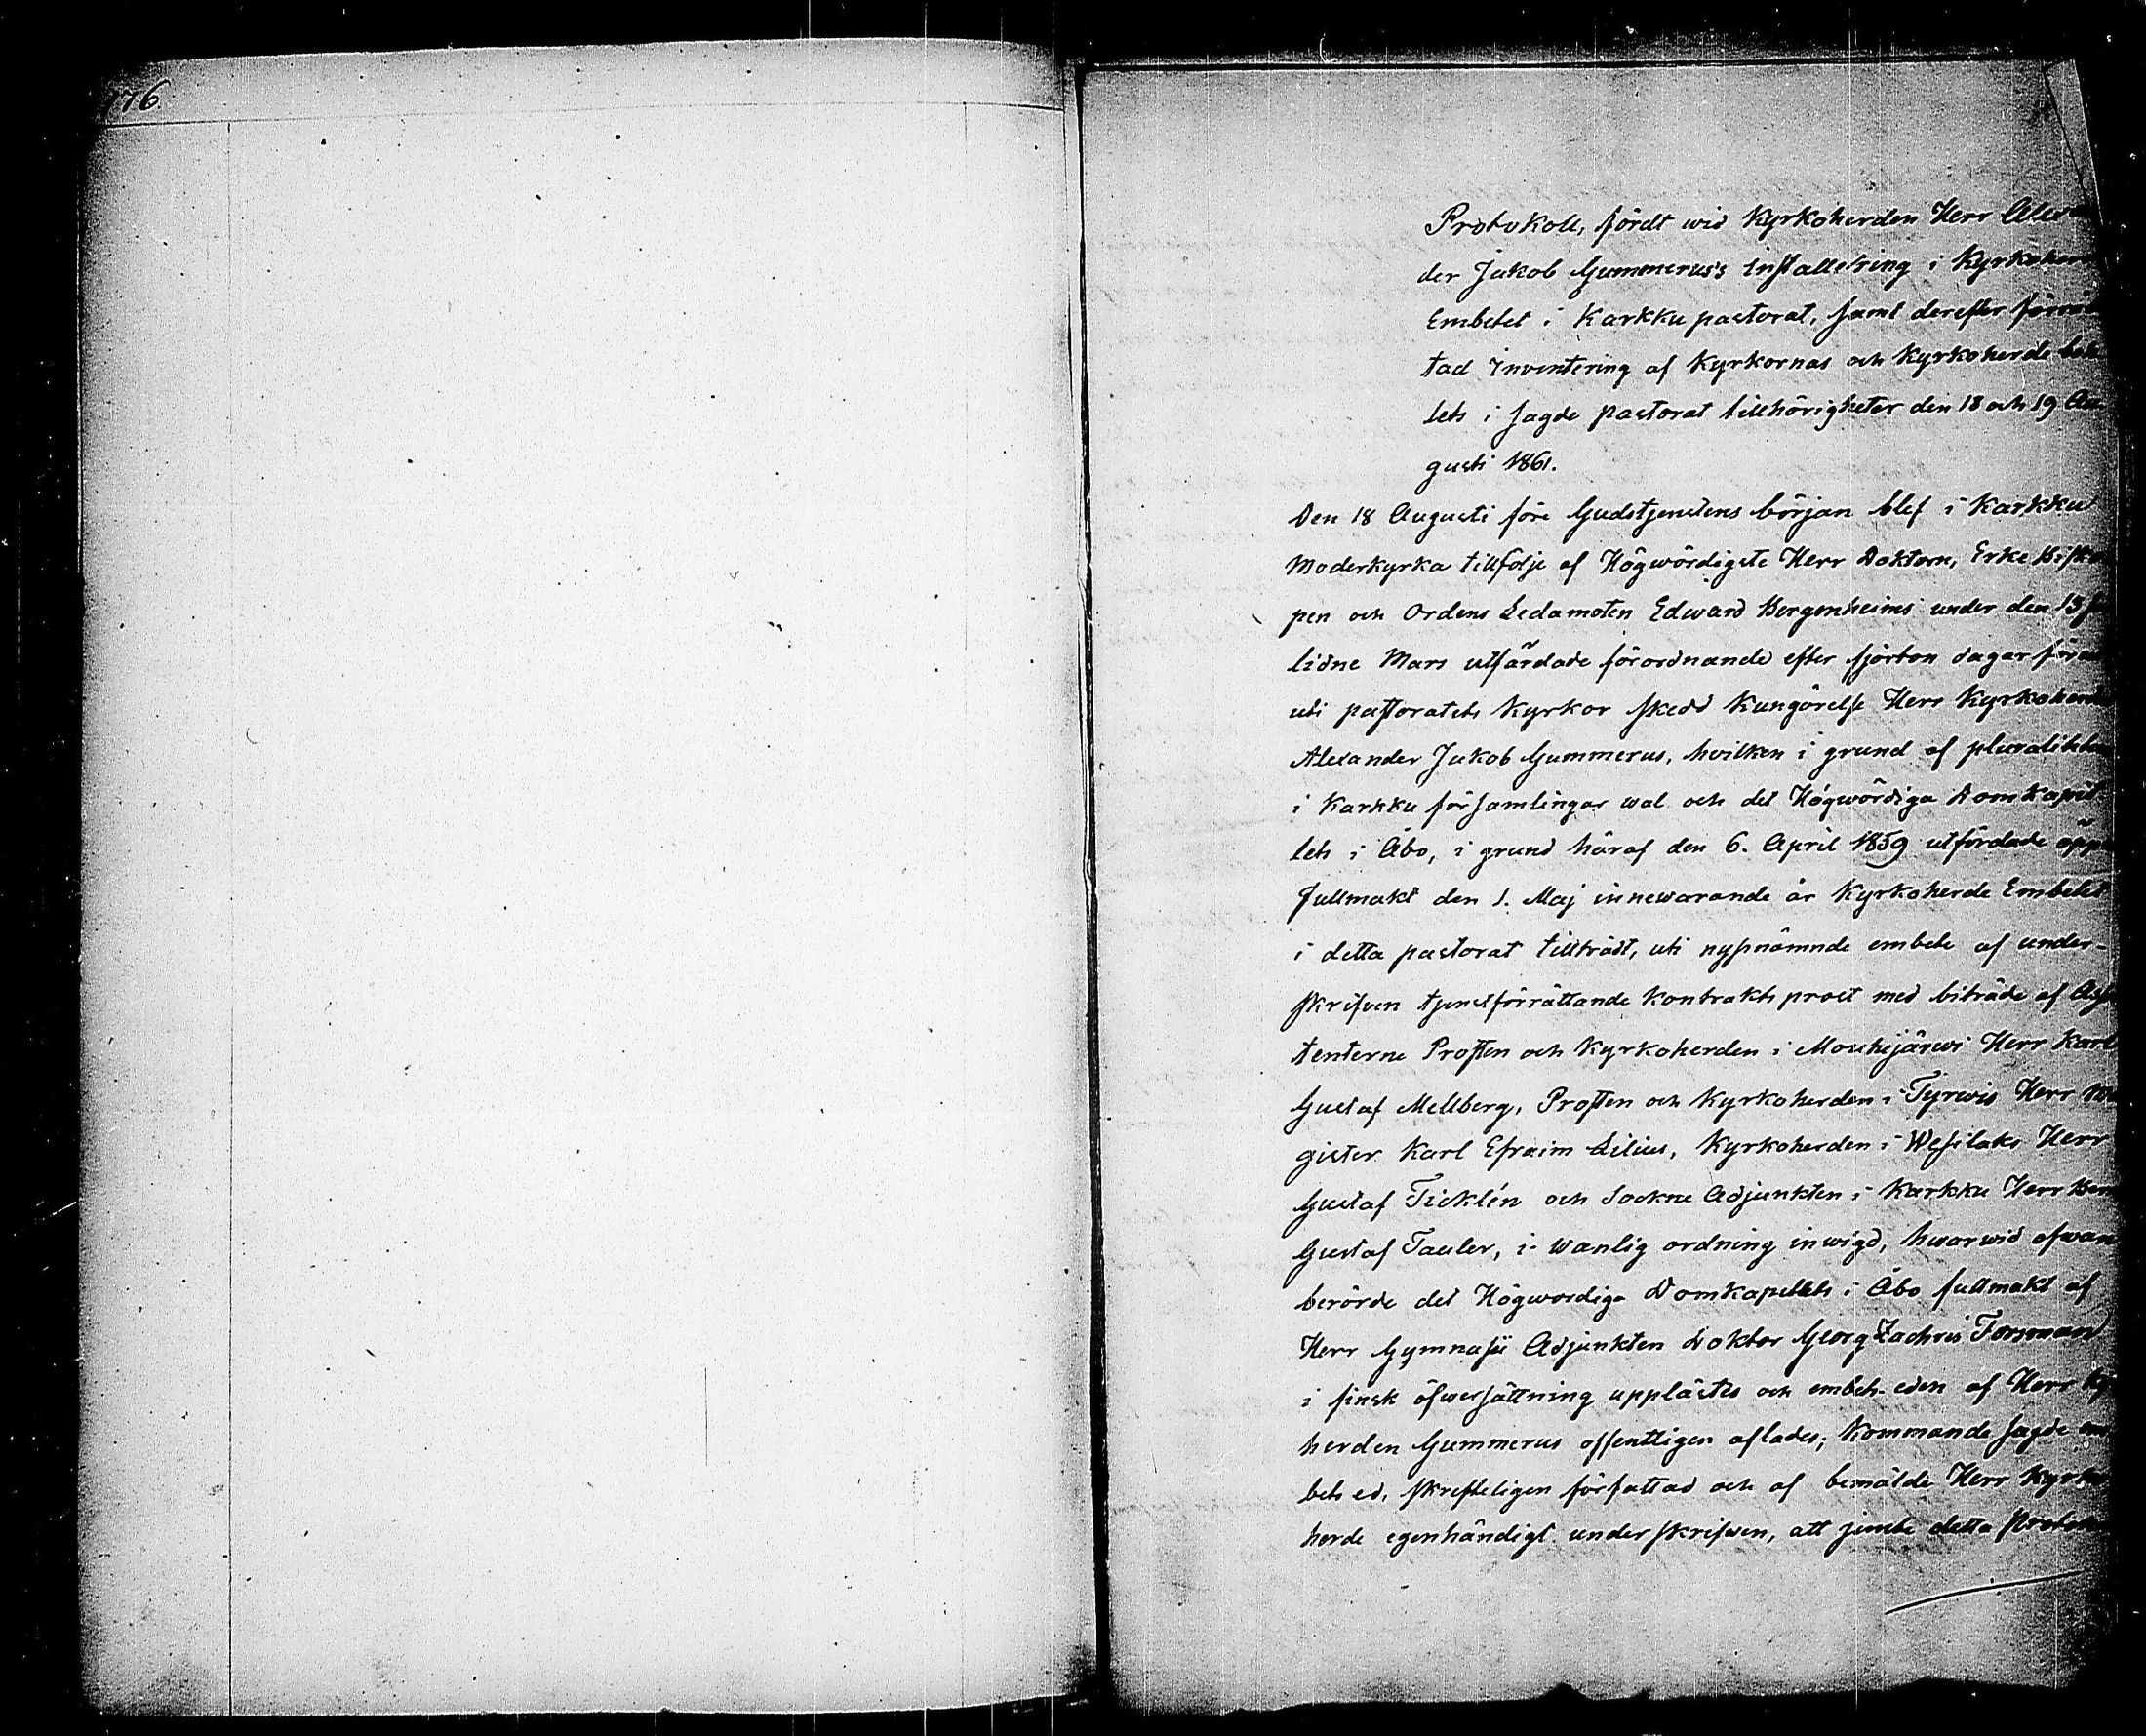 776
Protokoll, fördt wid Kyrkoherden Herr Alexan
der Jakob Gummerus's Installering i Kyrkoherde
Embetet i Karkku pastorat, samt derefter förrät
tad Inventering af Kyrkornas och Kyrkoherde bol
lets i sagde pastorat tillhörigheter den 18 och 19 Au
gusti 1861.
Den 18 Augusti före Gudstjenstens början blef i Karkku
Moderkyrka tillfölje af Högwördigste Herr Doktorn, Erke Bisko
pen och Ordens Ledamoten Edward Bergenheims under den 13
lidne Mars utfärdade förordnande efter fjorton dagar förut
uti pastoratets Kyrkor skedd Kungörelse Herr Kyrkoherden
Alexander Jakob Gummerus, hvilken i grund af pluraliteten
i Karkku församlingar wal och det Högwördiga Domkapit
lets i Åbo, i grund häraf den 6. April 1859 utfärdade öppna
fullmakt den 1. Maj innewarande år Kyrkoherde Embetet
i detta pastorat tillträdt, uti nyssnämnde embete af under-
skrifven tjenstförrättande Kontrakts prost med biträde af Assis
tenterne Prosten och Kyrkoherden i Mouhijärwi Herr Karl
Gustaf Mellberg, Prosten och Kyrkoherden i Tyrwis Herr Ma
gister Karl Efraim Lilius, Kyrkoherden i Wesilaks Herr
Gustaf Ticklén och Sockne Adjunkten i Karkku Herr
Gustaf Tauler, i wanlig ordning inwigd, hwarwid ofwan
berörde det Högwordiga Domkapitlets i Åbo fullmakt af
Herr Gymnasii Adjunkten Doktor Georg Zachris Forsman
i finsk öfwersättning upplästes och embets eden af Herr Kyrko
herden Gummerus offentligen aflades; Kommande sagde em
bets ed, skrifteligen författad och af bemälde Herr Kyrko
herde egenhändigt underskrifwen, att jemte detta Protokoll